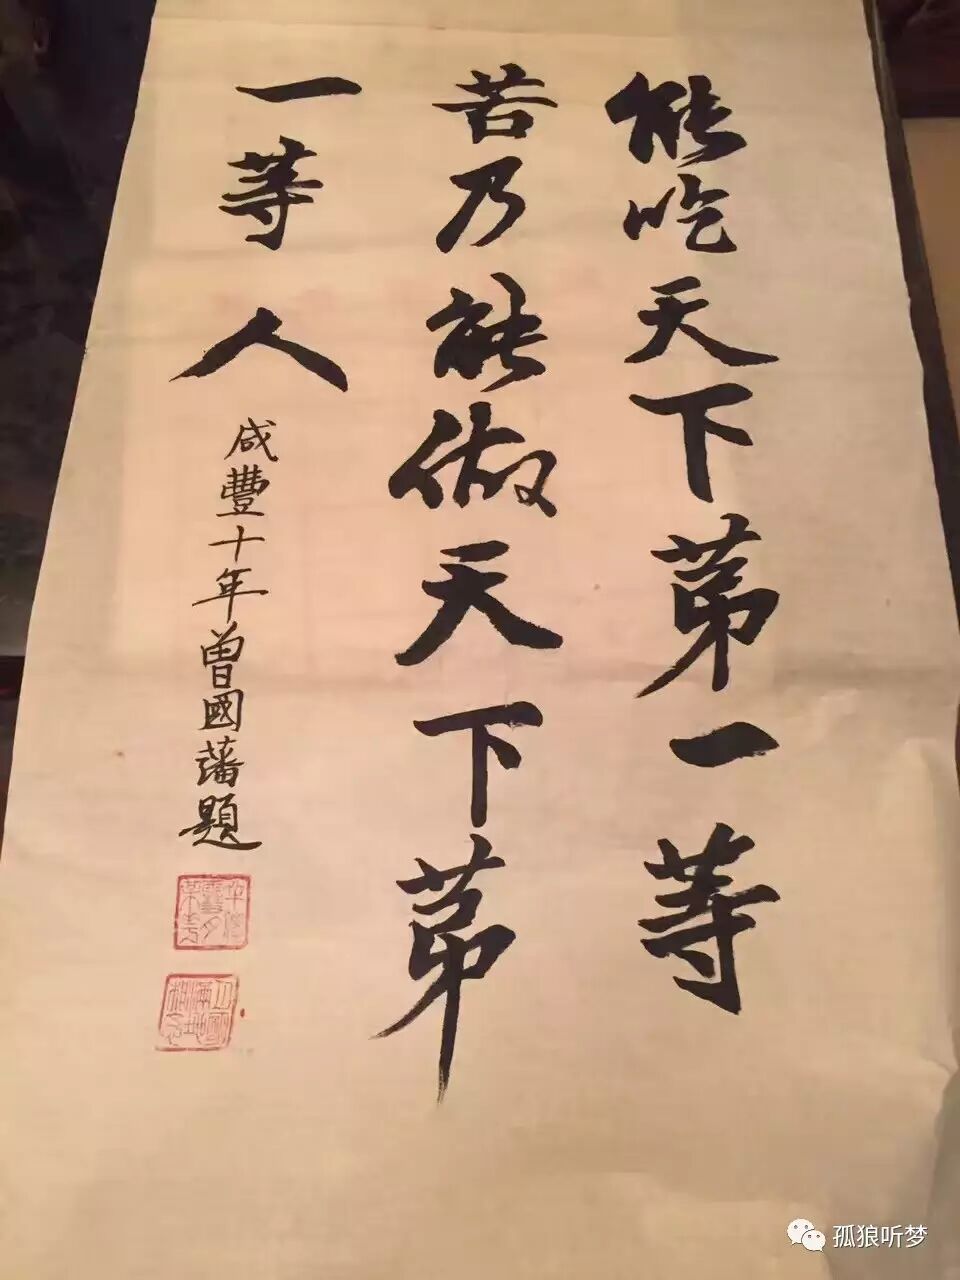 能吃天下第一等
苦乃能做天下第
一等人
咸豐十年曾國藩題
孤狼听梦